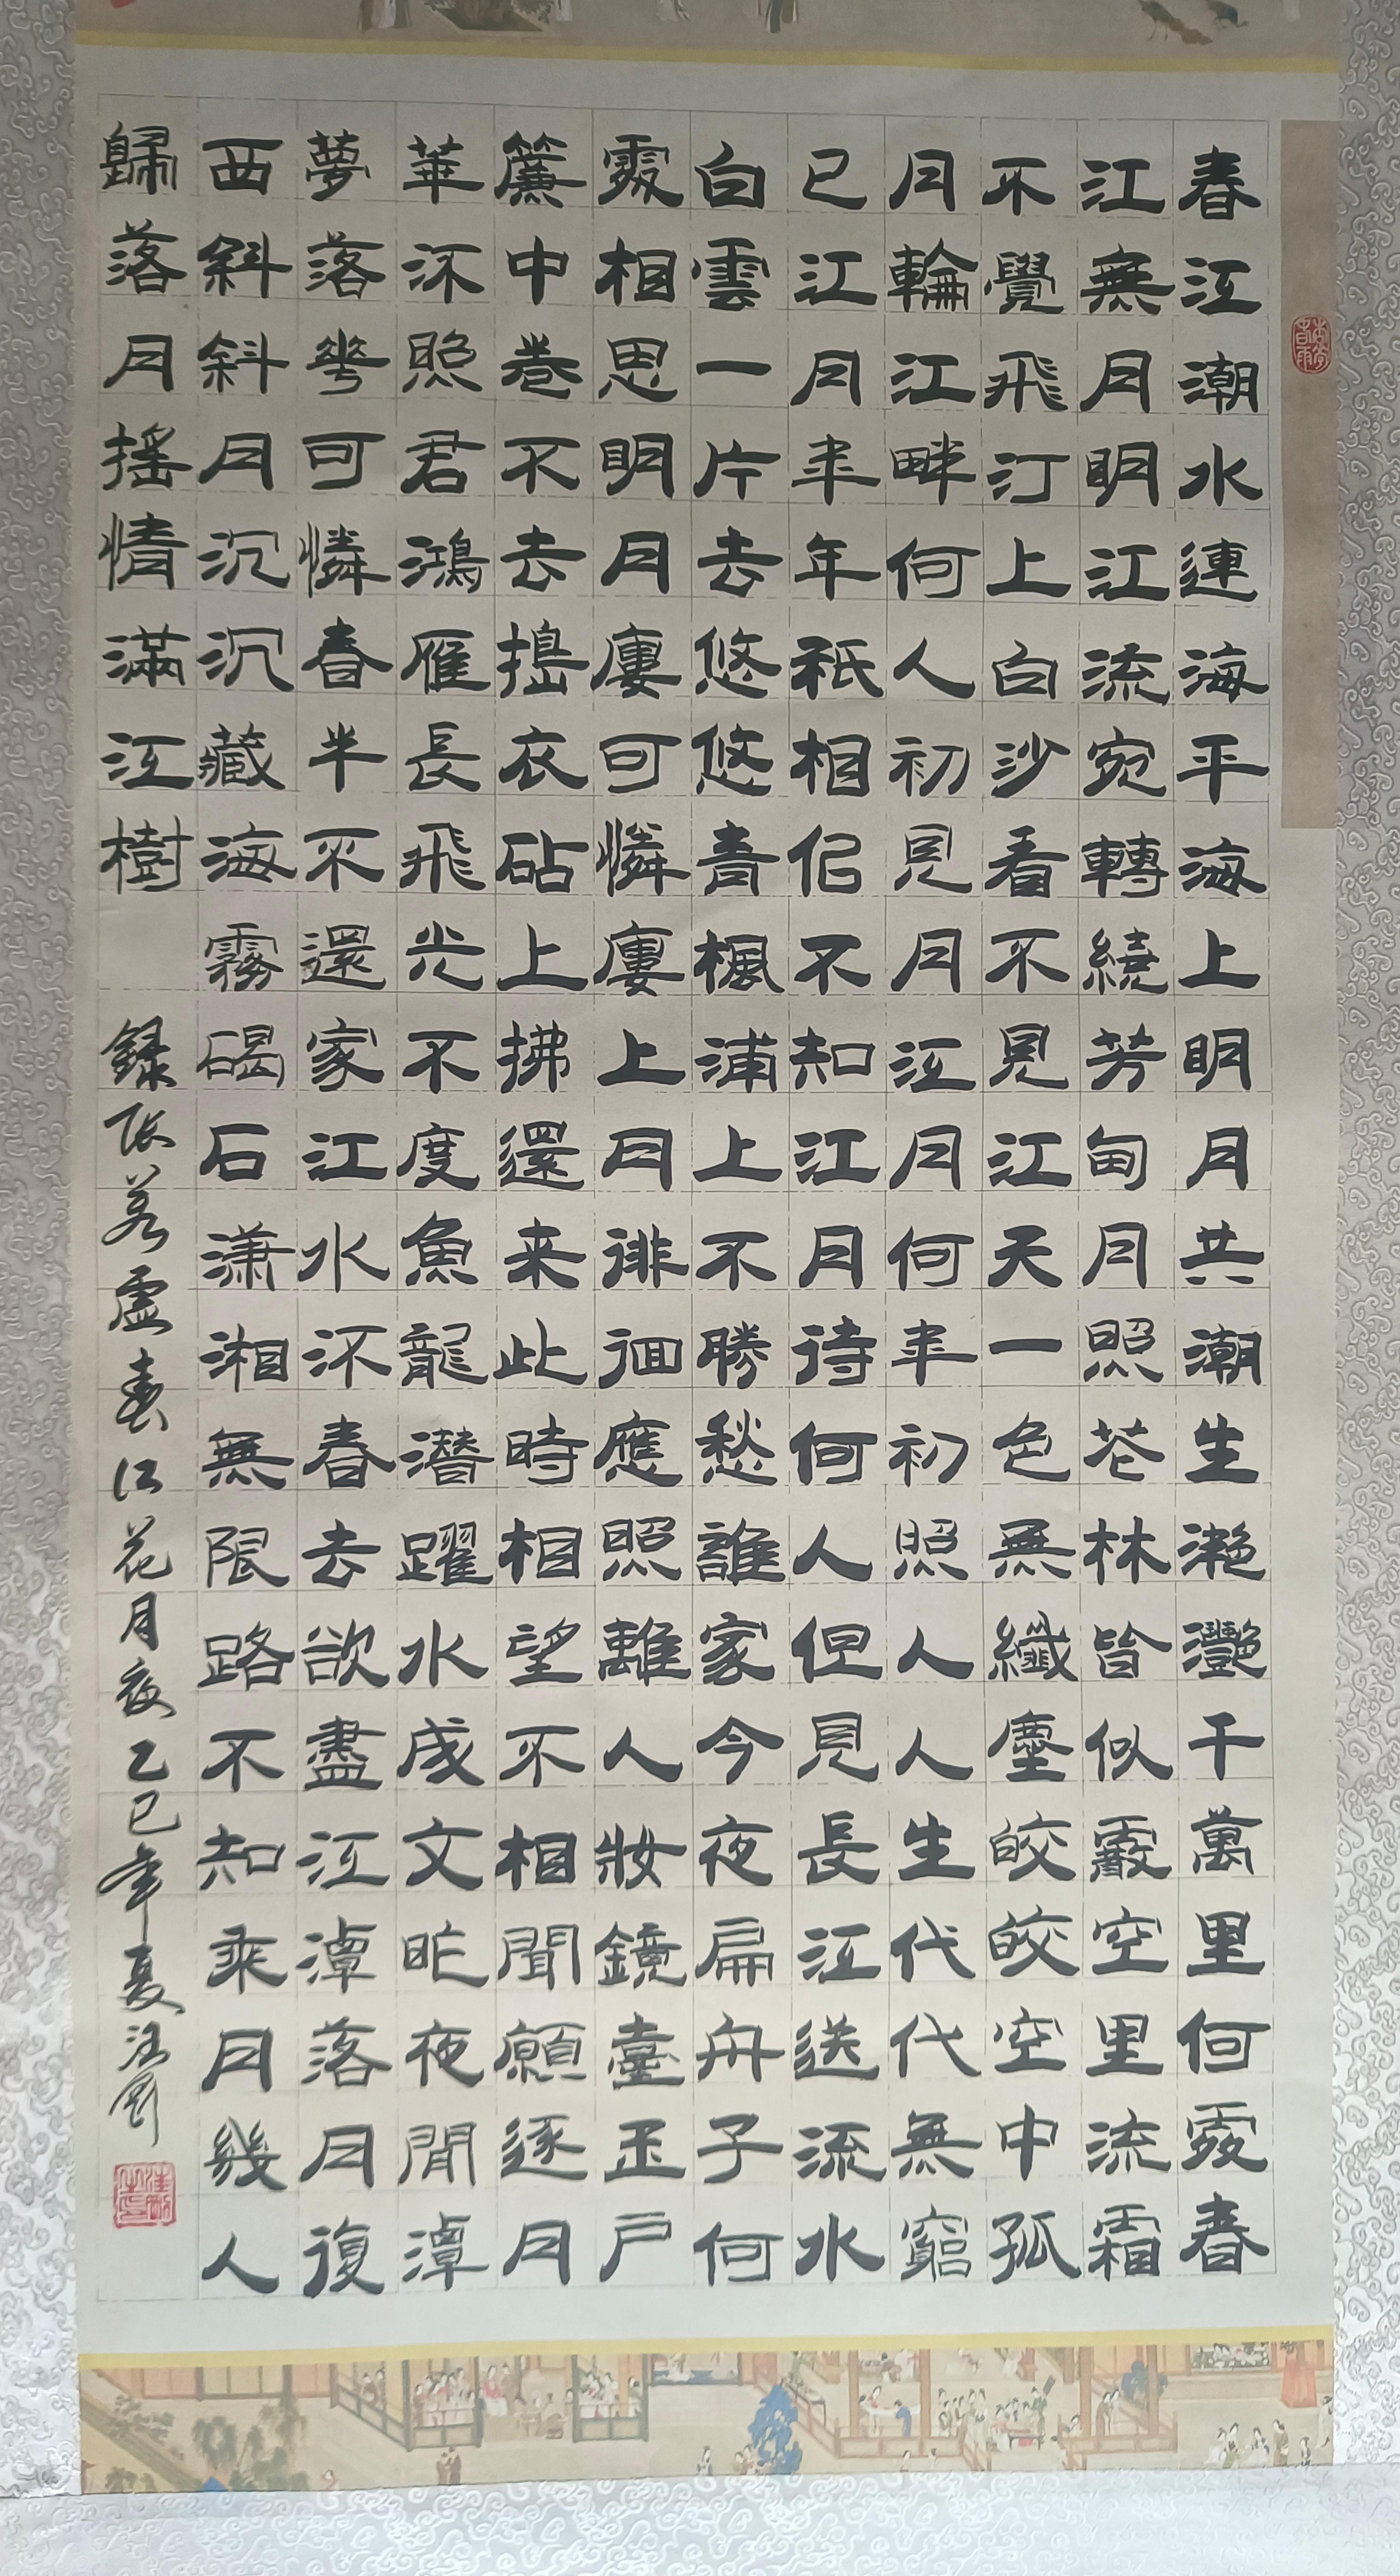 春江潮水連海平海上明月共潮生灔灩千萬里何處春
江無月明江流宛轉繞芳甸月照花林皆似霰空里流霜
不覺飛汀上白沙看不見江天一色無纖塵皎皎空中孤
月輪江畔何人初見月江月何年初照人人生代代無窮
已江月年年祇相似不知江月待何人但見長江送流水
白雲一片去悠悠青楓浦上不勝愁誰家今夜扁舟子何
處相思明月廔可憐廔上月徘徊應照離人妝鏡臺玉戶
簾中卷不去搗衣砧上拂還来此時相望不相聞願逐月
華流照君鴻雁長飛光不度魚龍潛躍水成文昨夜閒潭
夢落花可憐春半不還家江水流春去欲盡江潭落月復
西斜斜月沉沉藏海霧碣石瀟湘無限路不知乘月幾人
歸落月搖情滿江樹 録張若虛春江花月夜乙巳年夏汪剛